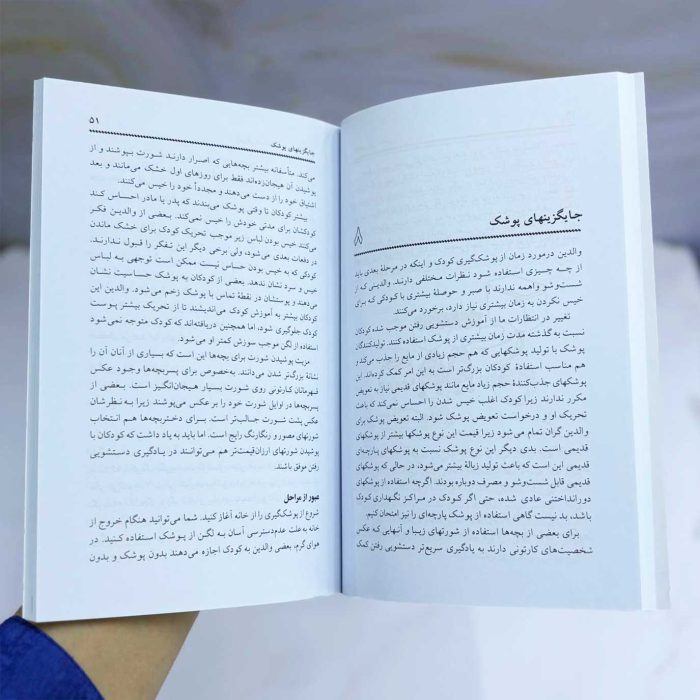 جایگزینهای پوشک
۸
والدین درمورد زمان از پوشک‌گیری کودک و اینکه در مرحلهٔ بعدی باید
از چه چیزی استفاده شود نظرات مختلفی دارند. والدینی که از
شست‌وشو واهمه ندارند با صبر و حوصلهٔ بیشتری با کودکی که برای
خیس نکردن به زمان بیشتری نیاز دارد، برخورد می‌کنند.
تغییر در انتظارات ما از آموزش دستشویی رفتن موجب شده کودکان
نسبت به گذشته مدت زمان بیشتری از پوشک استفاده کنند. تولیدکنندگان
پوشک با تولید پوشکهایی که هم حجم زیادی از مایع را جذب می‌کند و
هم مناسب استفادهٔ کودکان بزرگ‌تر است به این امر کمک کرده‌اند. این
پوشکهای جذب‌کنندهٔ حجم زیاد مایع مانند پوشکهای قدیمی نیاز به تعویض
مکرر ندارند زیرا کودک اغلب خیس شدن را احساس نمی‌کند که باعث
تحریک او و درخواست تعویض پوشک شود. البته تعویض پوشک برای
والدین گران تمام می‌شود زیرا قیمت این نوع پوشکها بیشتر از پوشکهای
قدیمی است. بدی دیگر این نوع پوشک نسبت به پوشکهای پارچه‌ای
قدیمی این است که باعث تولید زبالهٔ بیشتر می‌شود، در حالی که پوشکهای
قدیمی قابل شست‌وشو و مصرف دوباره بودند. اگرچه استفاده از پوشکهای
دورانداختنی عادی شده، حتی اگر کودک در مراکز نگهداری کودک
باشد، بد نیست گاهی استفاده از پوشک پارچه‌ای را نیز امتحان کنیم.
برای بعضی از بچه‌ها استفاده از شورتهای زیبا و آنهایی که عکس
شخصیت‌های کارتونی دارند به یادگیری سریع‌تر دستشویی رفتن کمک
جایگزینهای پوشک ۵۱
می‌کند. متأسفانه بیشتر بچه‌هایی که اصرار دارند شورت بپوشند و از
پوشیدن آن هیجان‌زده‌اند فقط برای روزهای اول خشک می‌مانند و بعد
اشتیاق خود را از دست می‌دهند و مجدداً خود را خیس می‌کنند.
بیشتر کودکان تا وقتی پوشک می‌شوند که پدر یا مادر احساس کند
کودکشان برای مدتی خودش را خیس نمی‌کند. بعضی از والدین فکر
می‌کنند خیس بودن لباس زیر موجب تحریک کودک برای خشک ماندن
در دفعات بعدی می‌شود، ولی برخی دیگر این تفکر را قبول ندارند.
کودکی که به خیس بودن حساس نیست ممکن است توجهی به لباس
خیس و سرد نشان ندهد. بعضی از کودکان به پوشک حساسیت نشان
می‌دهند و پوستشان در نقطهٔ تماس با پوشک زخم می‌شود. والدین این
کودکان بیشتر به آموزش کودک می‌اندیشند تا از تحریک بیشتر پوست
کودک جلوگیری شود، اما همچنین دریافته‌اند که کودک متوجه نمی‌شود
استفاده از لگن موجب سوزش کمتر او می‌شود.
مزیت پوشیدن شورت برای بچه‌ها این است که بسیاری از آنان آن را
نشانهٔ بزرگ‌تر شدن می‌دانند. به‌خصوص برای پسربچه‌ها وجود عکس
قهرمانان کارتونی روی شورت بسیار هیجان‌انگیز است. بعضی از
پسربچه‌ها در اوایل شورت خود را برعکس می‌پوشند زیرا به نظرشان
عکس پشت شورت جالب‌تر است. برای دختربچه‌ها هم انتخاب
شورتهای مصور و رنگارنگ رایج است. اما باید به یاد داشت که کودکان با
پوشیدن شورتهای ارزان‌قیمت‌تر هم می‌توانند در یادگیری دستشویی
رفتن موفق باشند.
عبور از مراحل
شروع از پوشک‌گیری را از خانه آغاز کنید. شما می‌توانید هنگام خروج از
خانه به علت عدم‌دسترسی آسان به لگن از پوشک استفاده کنید. در
هوای گرم، بعضی والدین به کودک اجازه می‌دهند بدون پوشک و بدون